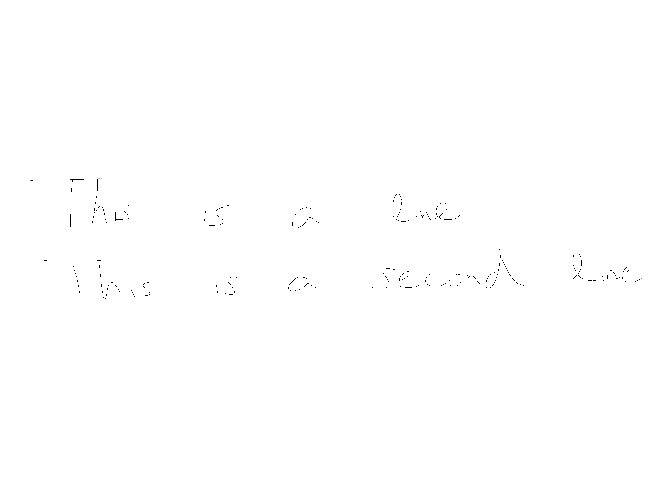 This is a line
This is a second line